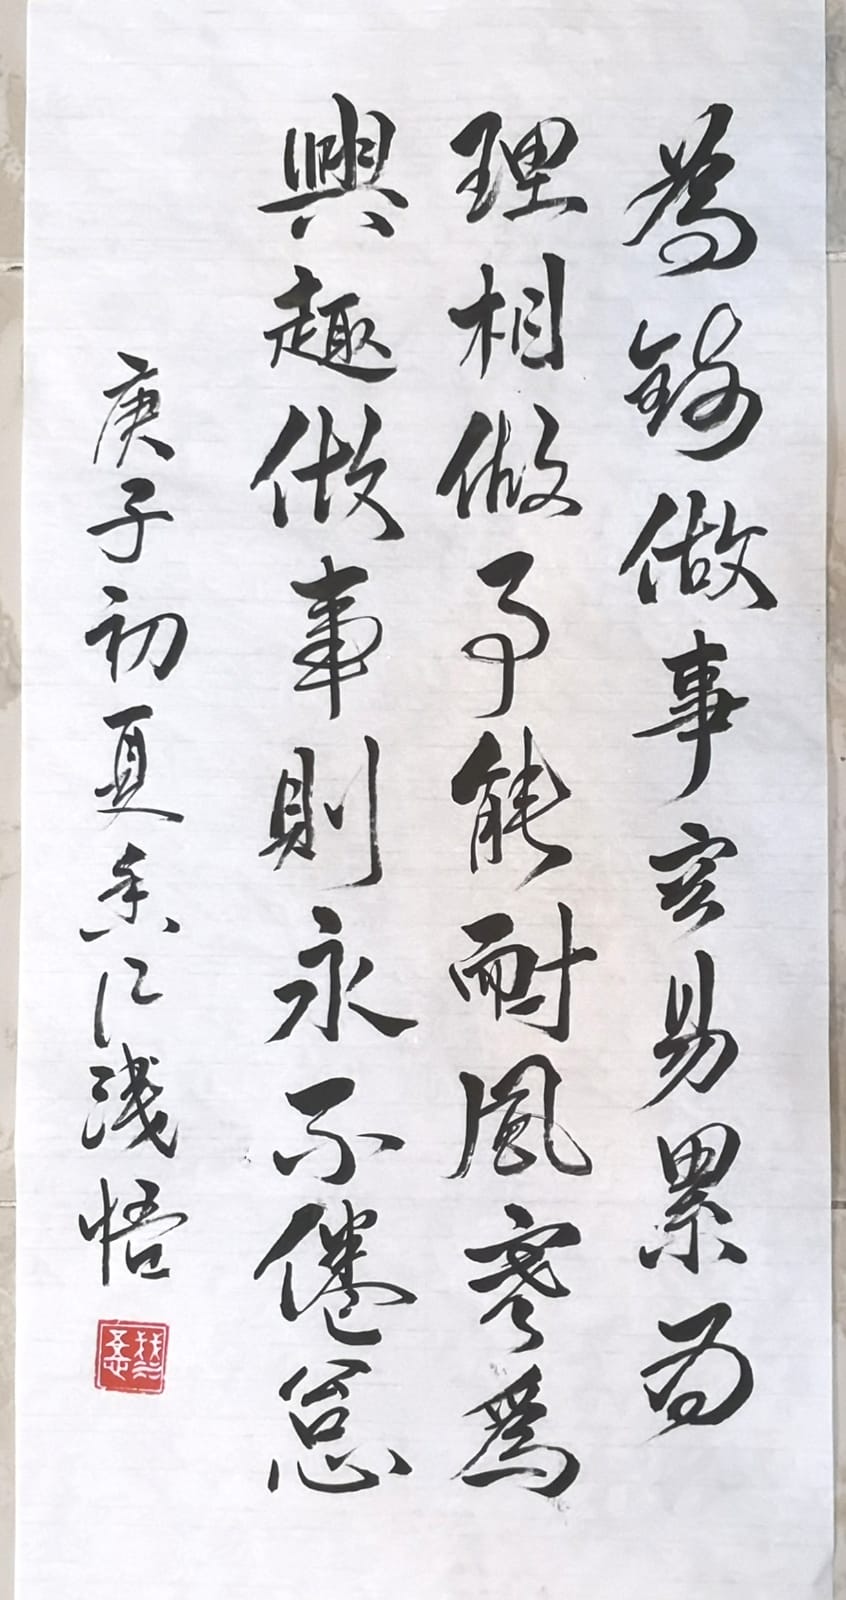 為錢做事容易累為
理相做事能耐風寒為
興趣做事則永不倦怠
庚子初夏香江淺悟